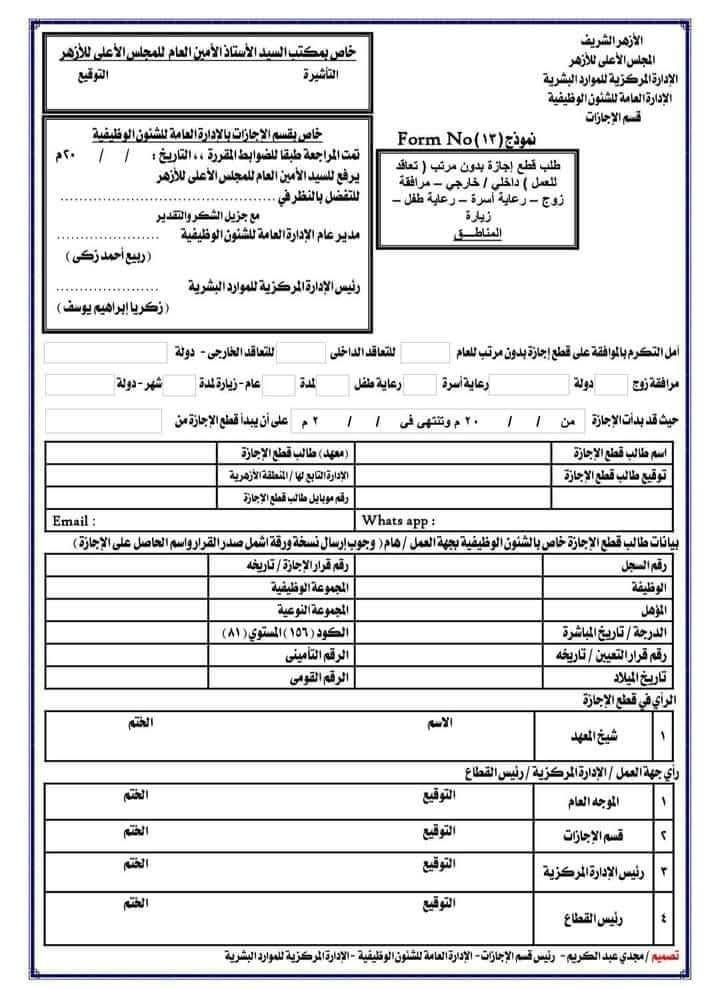 الأزهر الشريف
المجلس الأعلى للأزهر
الإدارة المركزية للموارد البشرية
الإدارة العامة للشئون الوظيفية
قسم الإجازات
خاص بمكتب السيد الأستاذ الأمين العام للمجلس الأعلى للأزهر
التأشيرة التوقيع
نموذج (١٣) Form No
طلب قطع إجازة بدون مرتب ( تعاقد
للعمل ) داخلي / خارجي – مرافقة
زوج – رعاية أسرة – رعاية طفل –
زيارة
المناطــق
خاص بقسم الإجازات بالإدارة العامة للشئون الوظيفية
تمت المراجعة طبقا للضوابط المقررة ،، التاريخ : / / ٢٠م
يرفع للسيد الأمين العام للمجلس الأعلى للأزهر
للتفضل بالنظر في ............................................
مع جزيل الشكر والتقدير
مدير عام الإدارة العامة للشئون الوظيفية .....................
(ربيع أحمد زكى )
رئيس الإدارة المركزية للموارد البشرية .....................
(زكريا إبراهيم يوسف )
أمل التكرم بالموافقة على قطع إجازة بدون مرتب للعام للتعاقد الداخلى للتعاقد الخارجى - دولة
مرافقة زوج دولة رعاية أسرة رعاية طفل لمدة عام - زيارة لمدة شهر - دولة
حيث قد بدأت الإجازة من / / ٢٠ م وتنتهى فى / / ٢ م على أن يبدأ قطع الإجازة من
اسم طالب قطع الإجازة (معهد) طالب قطع الإجازة
توقيع طالب قطع الإجازة الإدارة التابع لها / المنطقة الأزهرية
رقم موبايل طالب قطع الإجازة
Whats app : Email :
بيانات طالب قطع الإجازة خاص بالشئون الوظيفية بجهة العمل / هام ( وجوب إرسال نسخة ورقة اشمل صدر القرار واسم الحاصل على الإجازة )
رقم السجل رقم قرار الإجازة / تاريخه
الوظيفة المجموعة الوظيفية
المؤهل المجموعة النوعية
الدرجة / تاريخ المباشرة الكود (١٥٦) المستوي (٨١)
رقم قرار التعيين / تاريخه الرقم التأمينى
تاريخ الميلاد الرقم القومى
الرأي في قطع الإجازة
١ شيخ المعهد الاسم الختم
رأي جهة العمل / الإدارة المركزية / رئيس القطاع
١ الموجه العام التوقيع الختم
٢ قسم الإجازات التوقيع الختم
٣ رئيس الإدارة المركزية التوقيع الختم
٤ رئيس القطاع التوقيع الختم
تصميم / مجدي عبد الكريم - رئيس قسم الإجازات - الإدارة العامة للشئون الوظيفية - الإدارة المركزية للموارد البشرية